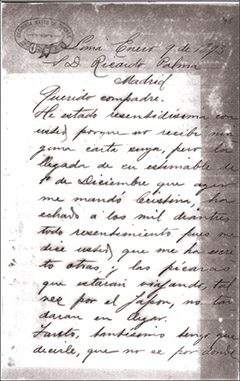 Lima Enero 9 de 1893
S. D. Ricardo Palma
Madrid
Querido compadre.
He estado resentidísima con
usted porque no recibí nin
guna carta suya, pero la
llegada de su estimable de
1º de Diciembre que ayer
me mandó Cristina, ha
echado a los mil diantres
todo resentimiento pues me
dice usted que me ha escri
to otras; las pícaras
que estarán viajando, tal
vez por el Japón, no las
daran en llegar.
tantísimo tengo que
decirle, que no se por donde